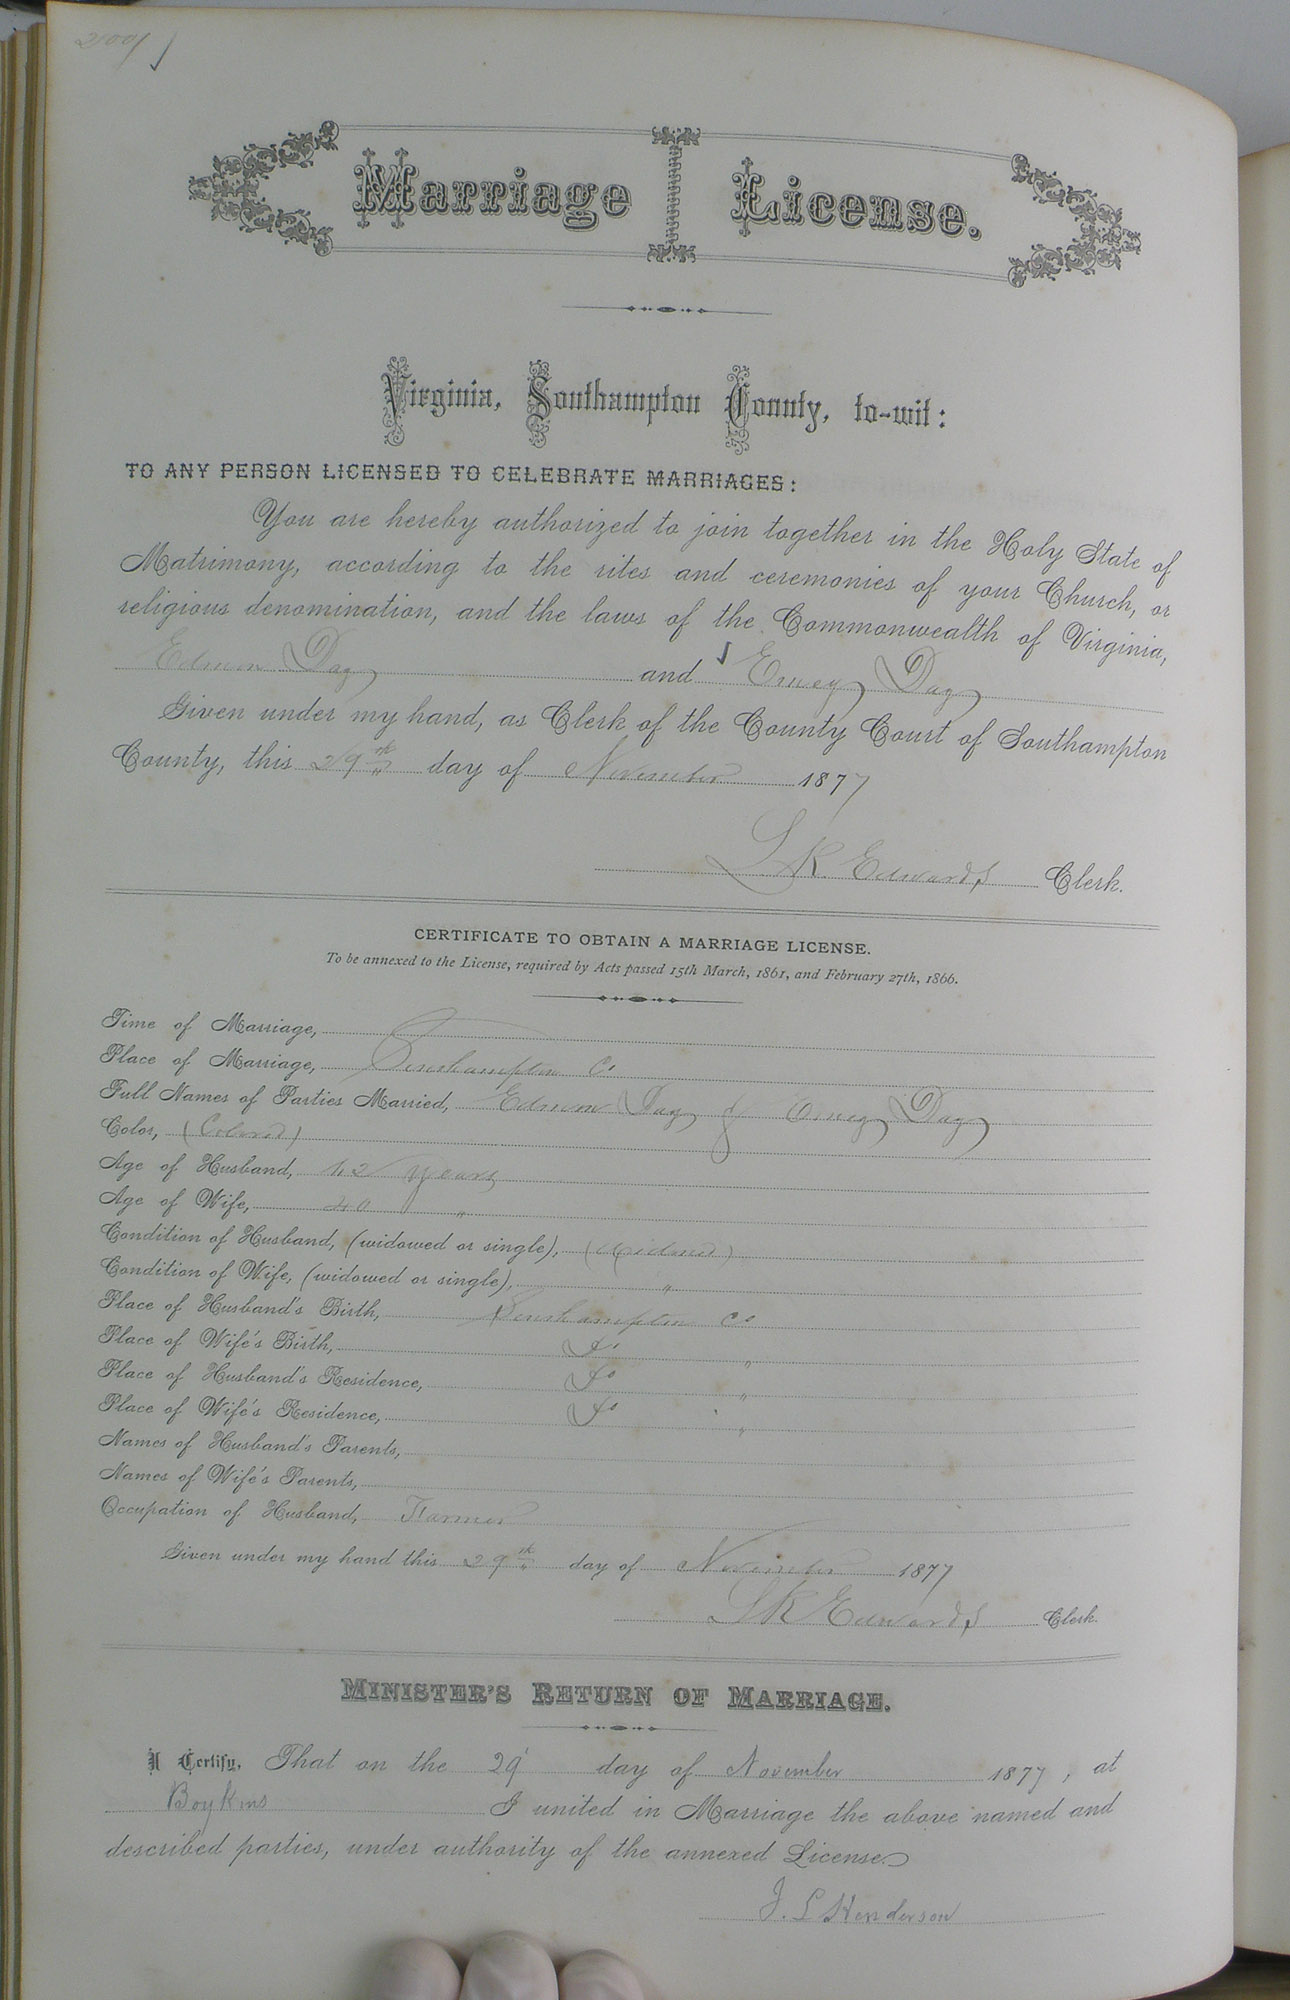 Marriage License.
Virginia, Southampton County, to-wit:
TO ANY PERSON LICENSED TO CELEBRATE MARRIAGES:
You are hereby authorized to join together in the Holy State of
Matrimony, according to the rites and ceremonies of your Church, or
religious denomination, and the laws of the Commonwealth of Virginia,
Edwin Day and Emey Day
Given under my hand, as Clerk of the County Court of Southampton
County, this 29th day of November 1877
L R Edwards Clerk.
CERTIFICATE TO OBTAIN A MARRIAGE LICENSE.
To be annexed to the License, required by Acts passed 15th March, 1861, and February 27th, 1866.
Time of Marriage,
Place of Marriage, Southampton Co
Full Names of Parties Married, Edwin Day & Emey Day
Color, (Colored)
Age of Husband, 42 years
Age of Wife, 40 "
Condition of Husband, (widowed or single), (Widowed)
Condition of Wife, (widowed or single), "
Place of Husband's Birth, Southampton Co
Place of Wife's Birth, Do "
Place of Husband's Residence, Do "
Place of Wife's Residence, Do "
Names of Husband's Parents,
Names of Wife's Parents,
Occupation of Husband, Farmer
Given under my hand this 29th day of November 1877
L R Edwards Clerk.
MINISTER'S RETURN OF MARRIAGE.
I Certify, That on the 29 day of November 1877, at
Boykins I united in Marriage the above named and
described parties, under authority of the annexed License.
J. L Henderson